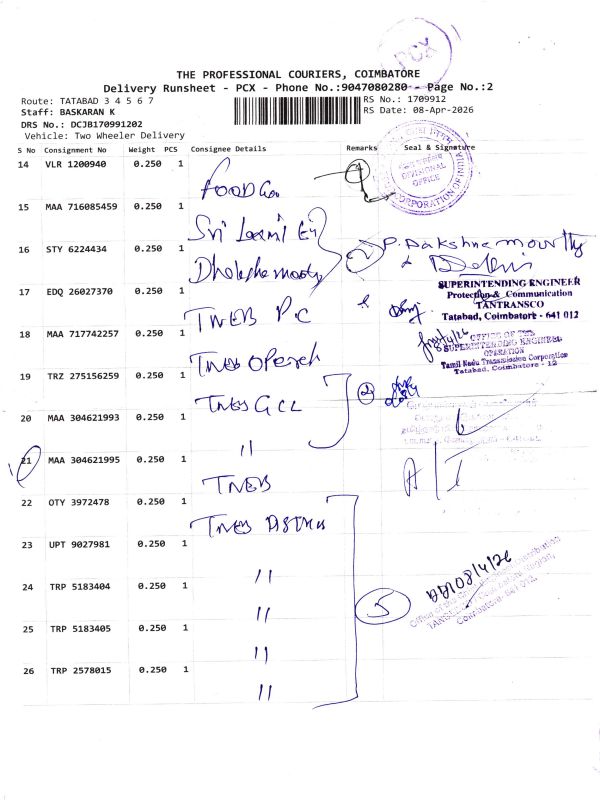 PCX
THE PROFESSIONAL COURIERS, COIMBATORE
Delivery Runsheet - PCX - Phone No.:9047080280 - Page No.:2
Route: TATABAD 3 4 5 6 7
RS No.: 1709912
Staff: BASKARAN K
RS Date: 08-Apr-2026
DRS No.: DCJB170991202
Vehicle: Two Wheeler Delivery
S No Consignment No Weight PCS Consignee Details Remarks Seal & Signature
14 VLR 1200940 0.250 1
Food
DIVISIONAL
OFFICE
CORPORATION OF INDIA
15 MAA 716085459 0.250 1
Sri Laxmi
16 STY 6224434 0.250 1
2
P. Dakshnamoorthy
SUPERINTENDING ENGINEER
Protection & Communication
TANTRANSCO
Tatabad, Coimbatore - 641 012
17 EDQ 26027370 0.250 1
TNEB PC
18 MAA 717742257 0.250 1
TNEB
OFFICE OF THE
SUPERINTENDING ENGINEER
OPERATION
Tamil Nadu Transmission Corporation
Tatabad, Coimbatore - 12
19 TRZ 275156259 0.250 1
TNEB GCC
2
20 MAA 304621993 0.250 1
"
21 MAA 304621995 0.250 1
TNEB
A/T
22 OTY 3972478 0.250 1
TNEB
23 UPT 9027981 0.250 1
"
24 TRP 5183404 0.250 1
"
5
08/4/26
25 TRP 5183405 0.250 1
"
26 TRP 2578015 0.250 1
"